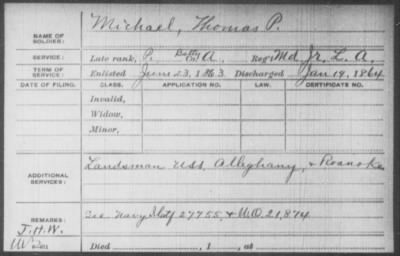 NAME OF SOLDIER: Michael, Thomas P.
SERVICE: Late rank, P. Batty Co. A Reg't Md. Jr. L. A.
TERM OF SERVICE: Enlisted June 23, 1863 Discharged Jan 19, 1864
DATE OF FILING. CLASS. APPLICATION NO. LAW. CERTIFICATE NO.
Invalid,
Widow,
Minor,
ADDITIONAL SERVICES: Landsman USS. Alleghany, & Roanoke
REMARKS: See Navy 27755, & W.O. 21,874
J.H.W.
Died , 1 , at